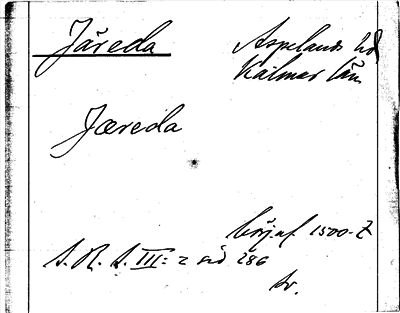 Järeda
Aspelands hd
Kalmar län
Jæreda
börj. af 1500-t
S. R. S. III: 2 sid 286
Sv.